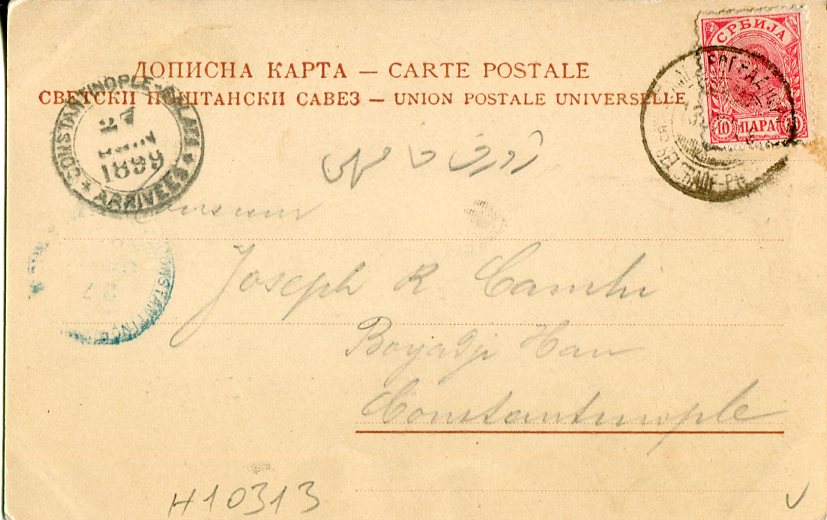 СРБИЈА
10 ПАРА 10
ДОПИСНА КАРТА — CARTE POSTALE
СВЕТСКИ ПОШТАНСКИ САВЕЗ — UNION POSTALE UNIVERSELLE
CONSTANTINOPLE-GALATA
27
1899
★ ARRIVEES ★
Monsieur
Joseph R Camhi
Boyadji Han
Constantinople
H10313